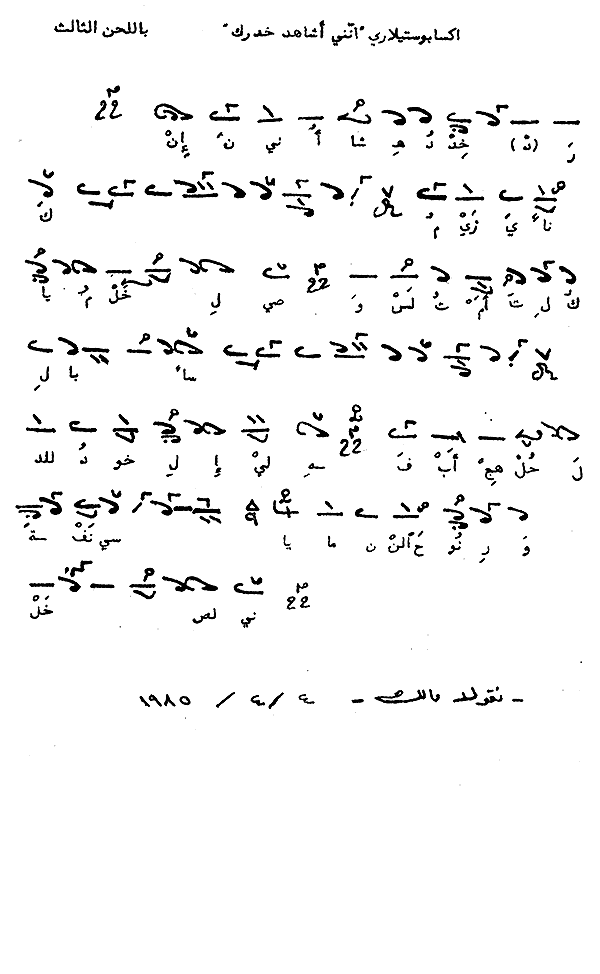 اكسابوستيلاري "انّني أشاهد خدرك" باللحن الثالث
إِنْ نَ ني أُ شا هِـ دُ خِدْ (دْ) رَ
كَ مُ زَيْ يَ ناً
يا مُ خَلْ لِ صي وَ لَسْ تُ أَمْ تَ لِ كُ
لِ با ساً
للد دُ خو لِ إِ لَيْ ـهِ فَ أَبْ هِجْ حُلْ لَ
ـةَ نَفْ سي يا ما نِ حَ ٱلنْ نُو رِ وَ
خَلْ لص ني
- نقولا مالك - ٤ / ٤ / ١٩٨٥